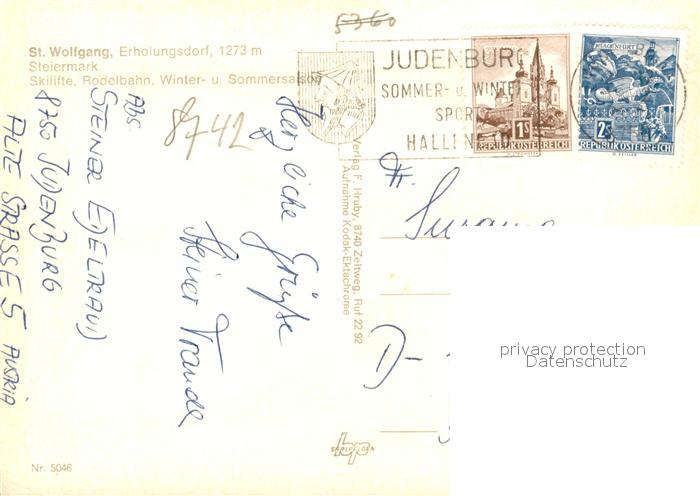 5360
St. Wolfgang, Erholungsdorf, 1273 m
Steiermark
Skilifte, Rodelbahn, Winter- u. Sommersaison
8742
ABS
STEINER E(DELTRAUD)
8750 JUDENBURG
ALTE STRASSE 5 AUSTRIA
Herzliche Grüße
Steiner Traude
Verlag F. Hruby, 8740 Zeltweg, Ruf 22 92
Aufnahme Kodak-Ektachrome
JUDENBURG
SOMMER- u. WINTER
SPOR
HALLEN
1S
REPUBLIK ÖSTERREICH
KLAGENFURT
2S
REPUBLIK ÖSTERREICH
Fr.
D-
privacy protection
Datenschutz
Nr. 5046